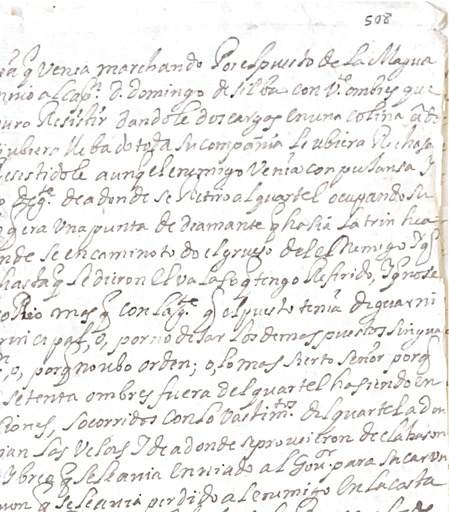 508
q̃ Venia marchando Por el puesto de la Magua
al Cap.n D. Domingo de silba con V.te ombres que
Resistir dandole dos cargas en una colina
ubiera llebado toda su compañia le ubiera Rechasa
resistidole aunq̃ el enemigo Venia con pujansa y
de g.te de adonde se Retiro al quartel ocupando su
q̃ era Una punta de diamante q̃ hasia la trinchea
nde se encamino todo el grueso del enemigo
hasta q̃ le dieron el Valaso q̃ tengo Referido, y no se
mas q̃ con la g.te q̃ el puesto tenia de guarni
rincipal, o, por no dejar los demas puestos sin gua
o, porq̃ no ubo orden; o, lo mas sierto señor porq̃
setenta ombres fuera del quartel hasiendo en
siones, socorridos con lo Vastim.tos del quartel a don
las Velas y de adonde se proveieron de clabason
y brea q̃ se le avia enviado al Gou.or para su caravn
q̃ se le avia perdido al enemigo en la costa